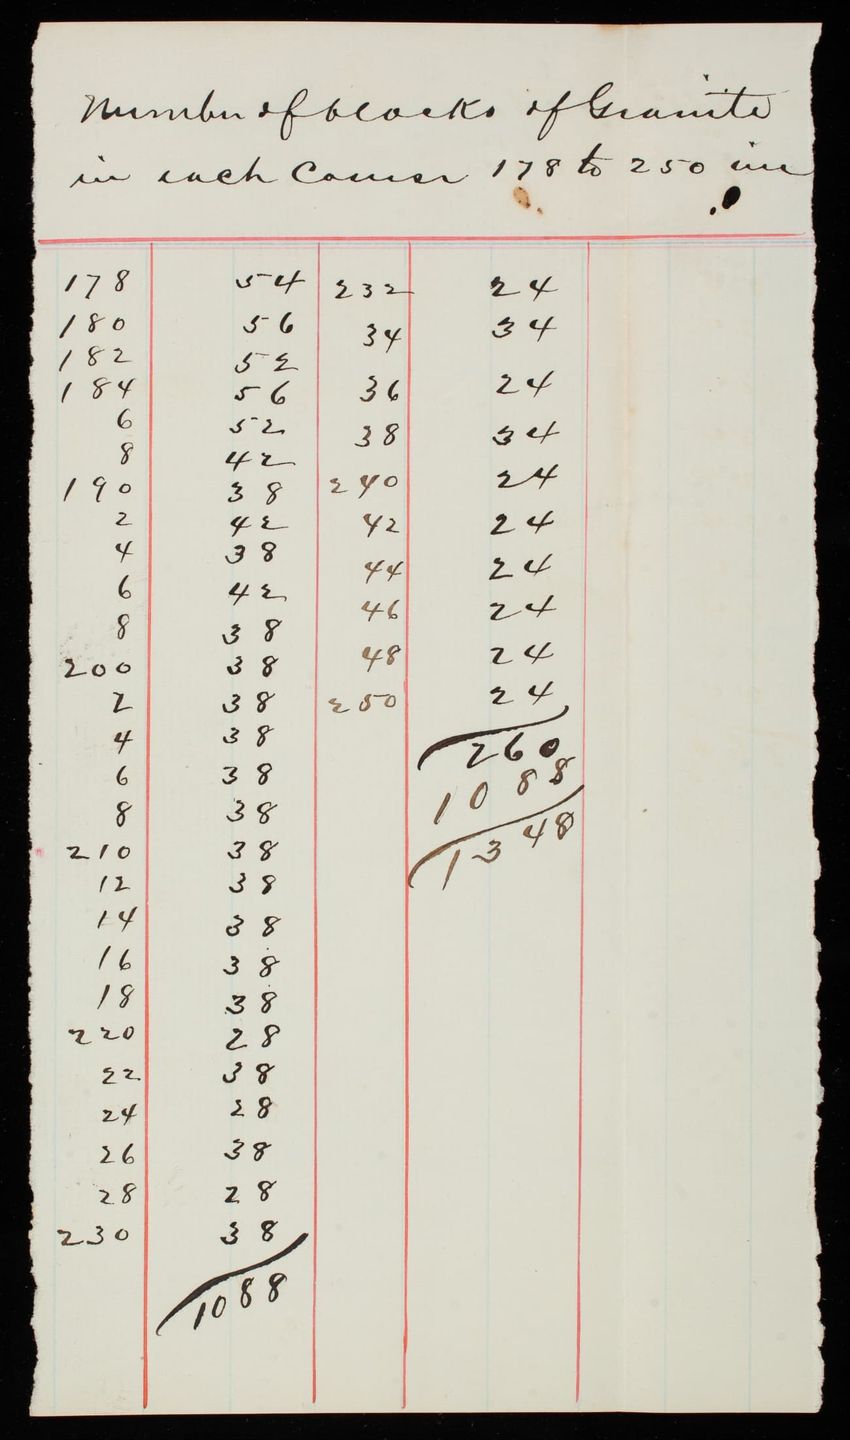 Number of blocks of Granite
in each Course 178 to 250 inc
178 54
180 56
182 52
184 56
6 52
8 42
190 38
2 42
4 38
6 42
8 38
200 38
2 38
4 38
6 38
8 38
210 38
12 38
14 38
16 38
18 38
220 28
22 38
24 28
26 38
28 28
230 38
1088
232 24
34 34
36 24
38 34
240 24
42 24
44 24
46 24
48 24
250 24
260
1088
1348